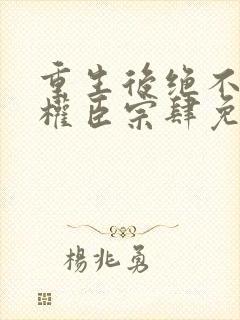 重生後绝不
權臣宗肆免
楊兆勇